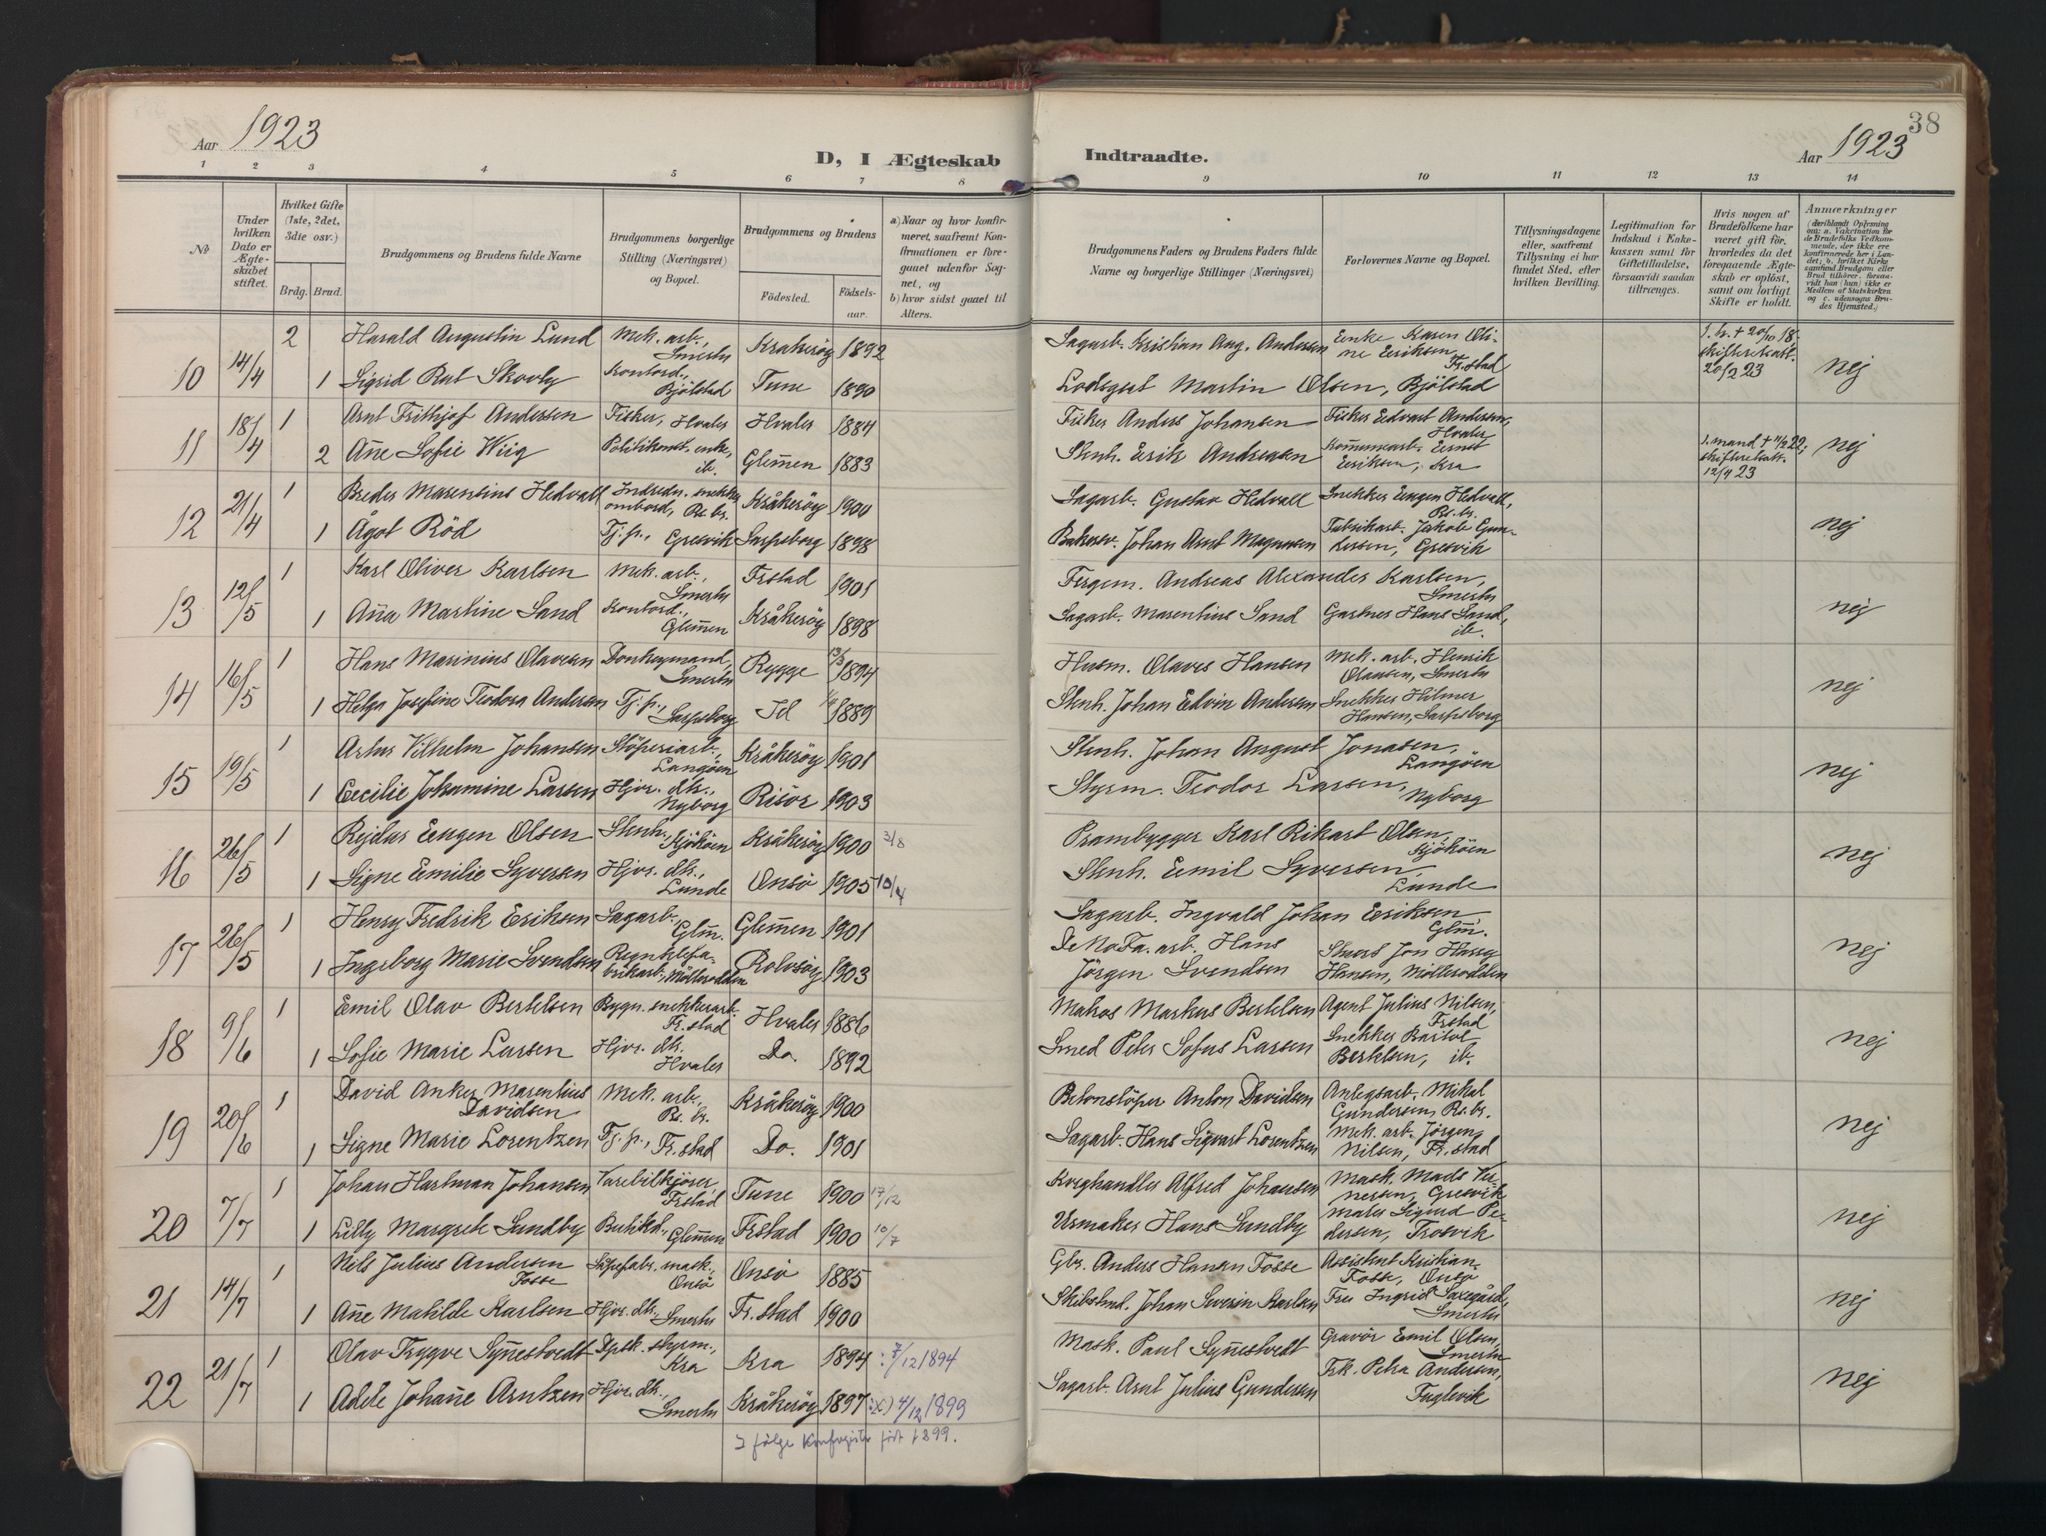 38
Aar 1923
D, I Ægteskab
Indtraadte.
Aar 1923
1 2 3 4 5 6 7 8 9 10 11 12 13 14
№
Under hvilken Dato er Ægteskabet stiftet.
Hvilket Gifte (1ste, 2det, 3die osv.)
Brdg. Brud.
Brudgommens og Brudens fulde Navne
Brudgommens borgerlige Stilling (Næringsvei) og Bopæl.
Brudgommens og Brudens
Fødested. Fødselsaar.
a) Naar og hvor konfirmeret, saafremt Konfirmationen er foregaaet udenfor Sognet, og b) hvor sidst gaaet til Alters.
Brudgommens Faders og Brudens Faders fulde Navne og borgerlige Stillinger (Næringsvei)
Forlovernes Navne og Bopæl.
Tillysningsdagene eller, saafremt Tillysning ei har fundet Sted, efter hvilken Bevilling.
Legitimation for Indskud i Enkekassen samt for Giftetilladelse, forsaavidt saadan tiltrænges.
Hvis nogen af Brudefolkene har været gift før, hvorledes da det foregaaende Ægteskab er opløst, samt om lovligt Skifte er holdt.
Anmærkninger
10 14/4 2 Harald Augustin Lund Mek. arb., Smertu Kråkerøy 1892 Sagarb. Kristian Aug. Andersen Enke Karen Oline Eriksen, Fr.stad 1. h. + 20/10 18. skifteretsatt. 20/2 23 nej
1 Sigrid Rut Skovly Kontord., Bjölstad Tune 1890 Lodsgut Martin Olsen, Bjölstad
11 18/4 1 Arnt Frithjof Andersen Fisker, Hvaler Hvaler 1884 Fisker Anders Johansen Fisker Edvart Andersen, Hvaler nej
2 Ane Sofie Wiig Politikonst. enke, ib. Glemmen 1883 Stenh. Erik Andresen Kommunearb. Ernst Eriksen, Kra 1. mand + 11/9 22; skifteretsatt. 12/4 23
12 21/4 1 Breder Marentius Hedvall Indredn. snekker ombord, Rs. br. Kråkeröy 1904 Sagarb. Gustav Hedvall Snekker Eugen Hedvall, Rs. br. nej
1 Ågot Röd Tj. p., Gresvik Sarpsborg 1898 Bakersv. Johan Arnt Magnussen Fabrikarb. Jakob Gundersen, Gresvik
13 12/5 1 Karl Oliver Karlsen Mek. arb., Smertu Frstad 1901 Fergem. Andreas Alexander Karlsen, Smertu nej
1 Anna Martine Sand Kontord., Glemmen Kråkeröy 1898 Sagarb. Marentius Sand Gartner Hans Sand, ib.
14 16/5 1 Hans Marinius Olavesen Donkeymand, Smertu Rygge 1894 Husm. Olaves Hansen Mek. arb. Henrik Olausen, Smertu nej
1 Helga Josefine Teodora Andersen Tj. p., Sarpsborg Id 1889 Stenh. Johan Edvin Andersen Snekker Hilmer Hansen, Sarpsborg
15 19/5 1 Artur Vilhelm Johansen Stöperiarb., Langöen Kråkeröy 1901 Stenh. Johan August Jonasen, Langöen nej
1 Cecilie Johannine Larsen Hjv. dtr., Nyborg Risör 1903 Styrm. Teodor Larsen, Nyborg
16 26/5 1 Rejdar Eugen Olsen Stenh., Kjököen Kråkeröy 1900 3/8 Prambygger Karl Rikart Olsen, Kjököen nej
1 Signe Emilie Syversen Hjv. dtr., Lunde Onsö 1905 10/4 Stenh. Emil Syversen, Lunde
17 26/5 1 Henry Fredrik Eriksen Sagarb. Glm. Glemmen 1901 Sagarb. Ingvald Johan Eriksen, Glm. nej
1 Ingeborg Marie Svendsen Möllerodden Rolvsöy 1903 De No Fa. arb. Hans Jörgen Svendsen Hansen, Möllerodden
18 9/6 1 Emil Olav Bertelsen Bygn. snekkerarb. Fr.stad Hvaler 1886 Markus Bertelsen Agent Julius Nilsen, Frstad nej
1 Sofie Marie Larsen Hjv. dtr. Hvaler Do. 1892 Smed Peter Sofus Larsen Snekker Bertelsen, ib.
19 20/6 1 David Anker Marentius Davidsen Mek. arb., Rs. br. Kråkeröy 1900 Betonstöper Anton Davidsen Anlegsarb. Mikal Gundersen, Rs. br. nej
1 Signe Marie Lorentzen Tj. p., Fr.stad Do. 1901 Sagarb. Hans Sigvart Lorentzen Mek. arb. Jörgen Nilsen, Fr.stad
20 7/7 1 Johan Hartman Johansen Varebilkjörer, Frstad Tune 1900 17/12 Alfred Johansen Mask. Mads Vernersen, Gresvik nej
1 Lilly Margrete Sundby Butikd., Glemmen Frstad 1900 10/7 Urmaker Hans Sundby Maler Sigurd Pedersen, Trosvik
21 14/7 1 Nils Julius Andersen Fosse Såpefabr. mask., Onsö Onsö 1885 Gbr. Anders Hansen Fosse Assistent Kristian Fosse, Onsö nej
1 Ane Matilde Karlsen Hjv. dtr., Smertu Fr.stad 1900 Skibstmd. Johan Severin Karlsen Fru Ingrid Saxegård, Smertu
22 21/7 1 Olav Trygve Synnestvedt styrm., Kra Kra 1894 7/12 1894 Mask. Paul Synnestvedt Gravör Emil Olsen, Smertu nej
1 Adele Johanne Arntzen Hjv. dtr., Smertu Kråkeröy 1897 :x) 4/12 1899 Sagarb. Arnt Julius Gundersen Frk. Petra Andersen, Fuglevik
födt 1899.